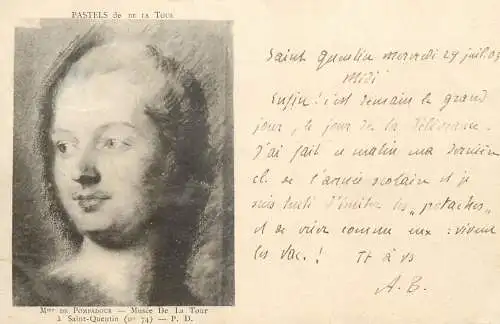 PASTELS de DE LA TOUR
Mme DE POMPADOUR — MUSÉE DE LA TOUR
à SAINT-QUENTIN (no 74) — P. D.
Saint Quentin Mercredi 29 juil. 03
Midi
Enfin ! c'est demain le grand
jour, le jour de la Délivrance.
J'ai fait ce matin ma dernière
cl. de l'année scolaire et je
suis tenté d'imiter les „potaches"
et de crier comme eux : vivent
les vac. ! Tt à vs
A. B.